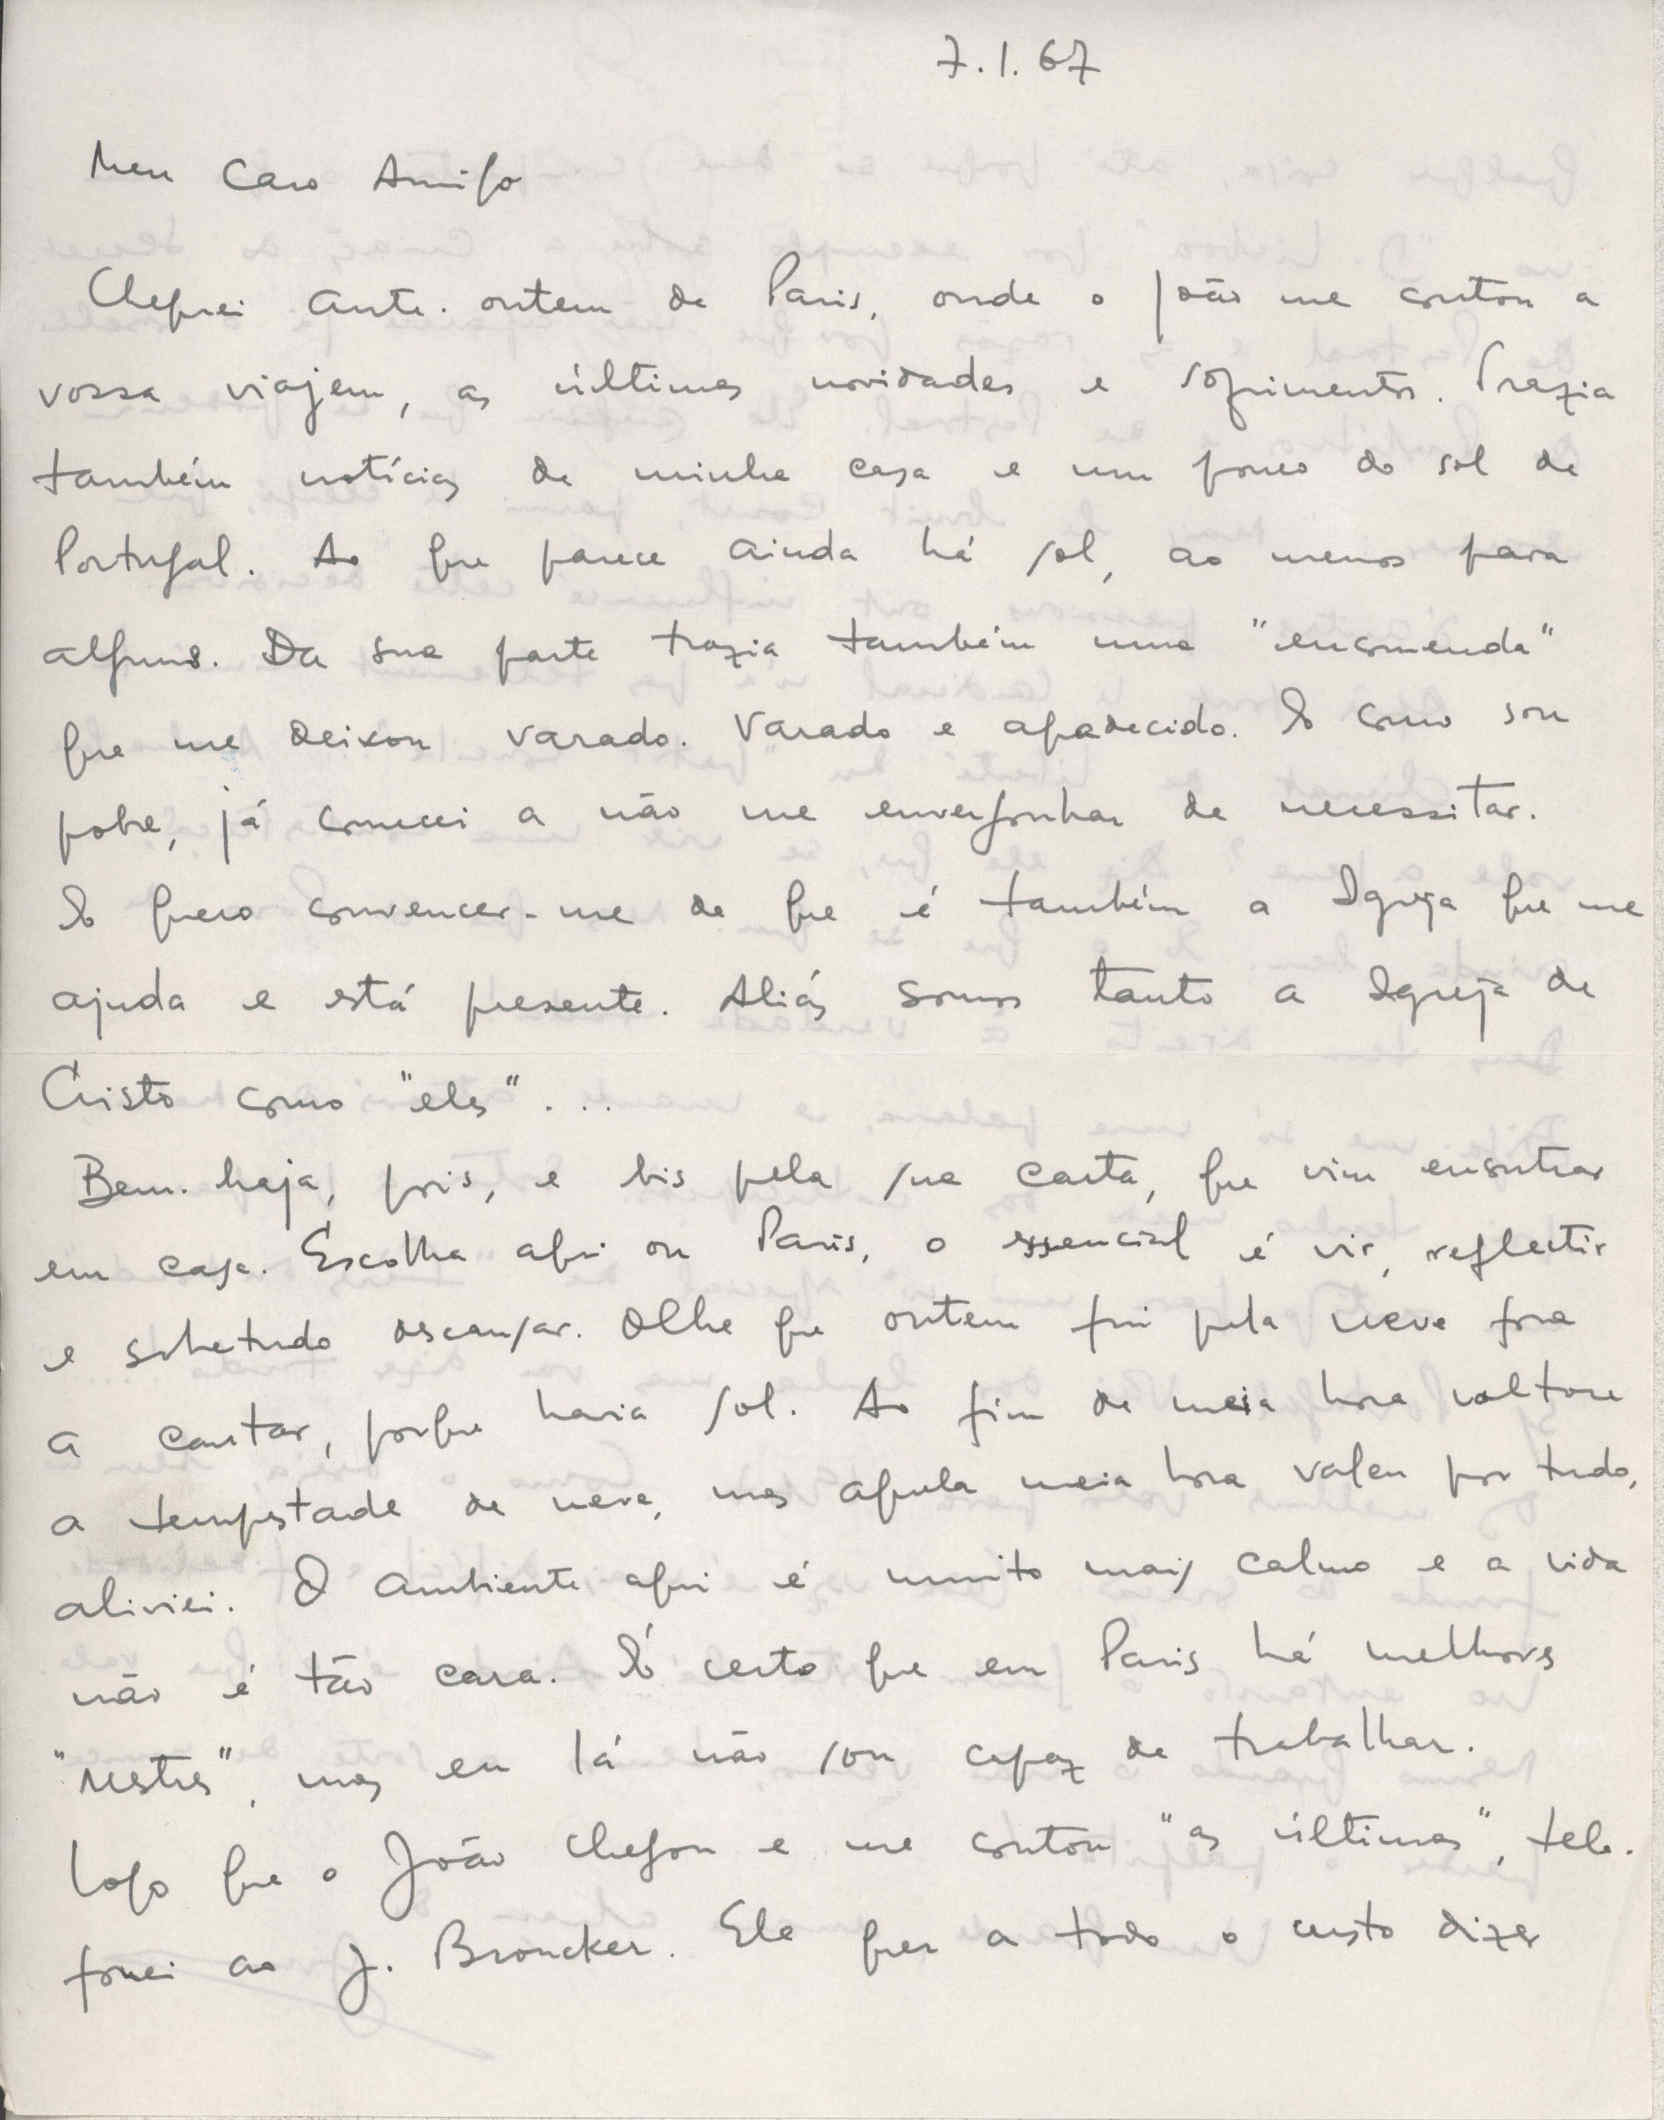 7.1.67
Meu Caro Amigo
Cheguei ante-ontem de Paris, onde o João me contou a
vossa viajem, as últimas novidades e sofrimentos. Trazia
também notícias de minha casa e um pouco do sol de
Portugal. Ao que parece ainda há sol, ao menos para
alguns. Da sua parte trazia também uma "encomenda"
que me deixou varado. Varado e agradecido. E como sou
pobre, já comecei a não me envergonhar de necessitar.
E quero convencer-me de que é também a Igreja que me
ajuda e está presente. Aliás somos tanto a Igreja de
Cristo como "eles"...
Bem-haja, pois, e bis pela sua carta, que vim encontrar
em casa. Escolha aqui ou Paris, o essencial é vir, reflectir
e sobretudo descansar. Olhe que ontem fui pela neve fora
a cantar, porque havia sol. Ao fim de meia hora voltou
a tempestade de neve, mas aquela meia hora valeu por tudo,
aliviei. O ambiente aqui é muito mais calmo e a vida
não é tão cara. É certo que em Paris há melhores
"mestres", mas eu lá não sou capaz de trabalhar.
Logo que o João chegou e me contou "as últimas", tele-
fonei ao J. Broucker. Ele quer a todo o custo dizer